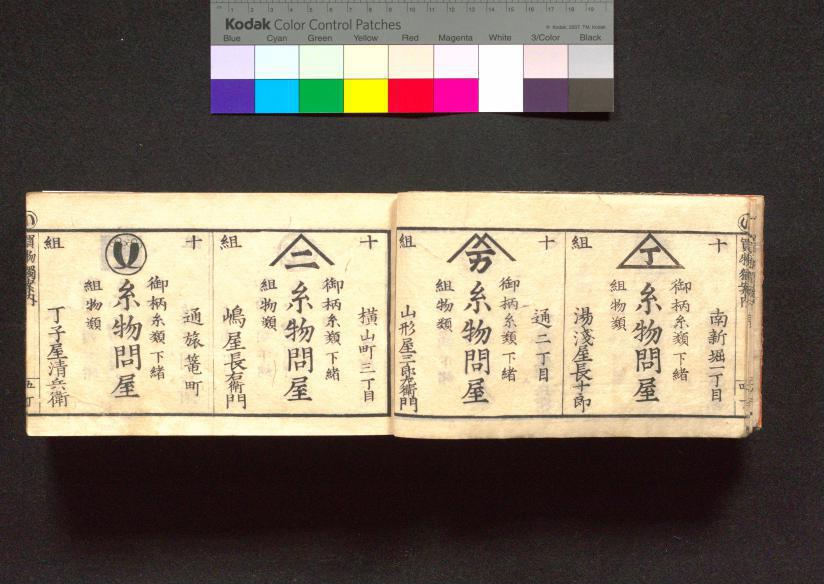 Kodak Color Control Patches
Blue Cyan Green Yellow Red Magenta White 3/Color Black
十
組
南新堀一丁目
御柄糸類下緒
組物類
丁
糸物問屋
湯淺屋長十郎
十
組
通二丁目
御柄糸類下緒
組物類
糸物問屋
山形屋三郎左衛門
十
組
横山町三丁目
御柄糸類下緒
組物類
二
糸物問屋
嶋屋長右衛門
十
組
通旅篭町
御柄糸類下緒
組物類
糸物問屋
丁子屋清兵衛
五丁